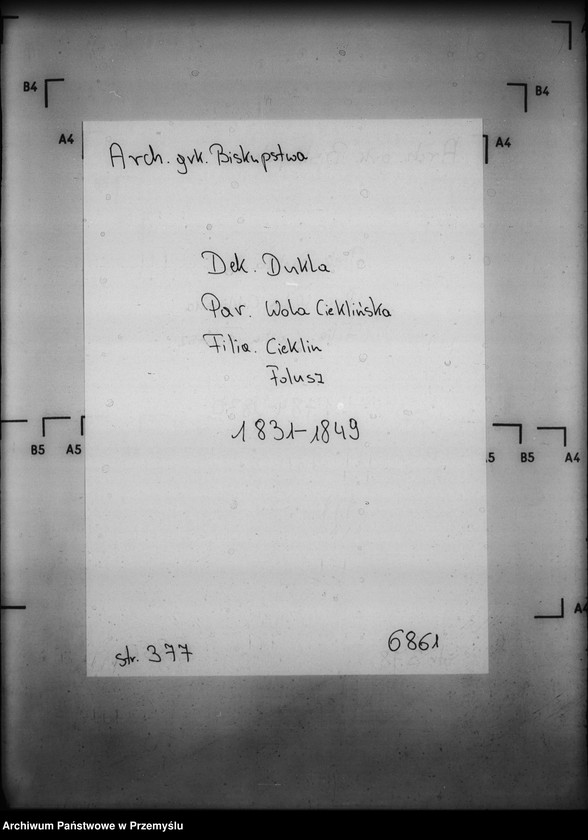 B4
B4
A4
A4
Arch. grk. Biskupstwa
Dek. Dukla
Par. Wola Cieklińska
Filia. Cieklin
Folusz
1831-1849
B5
A5
B5
A4
str. 377
6861
Archiwum Państwowe w Przemyślu